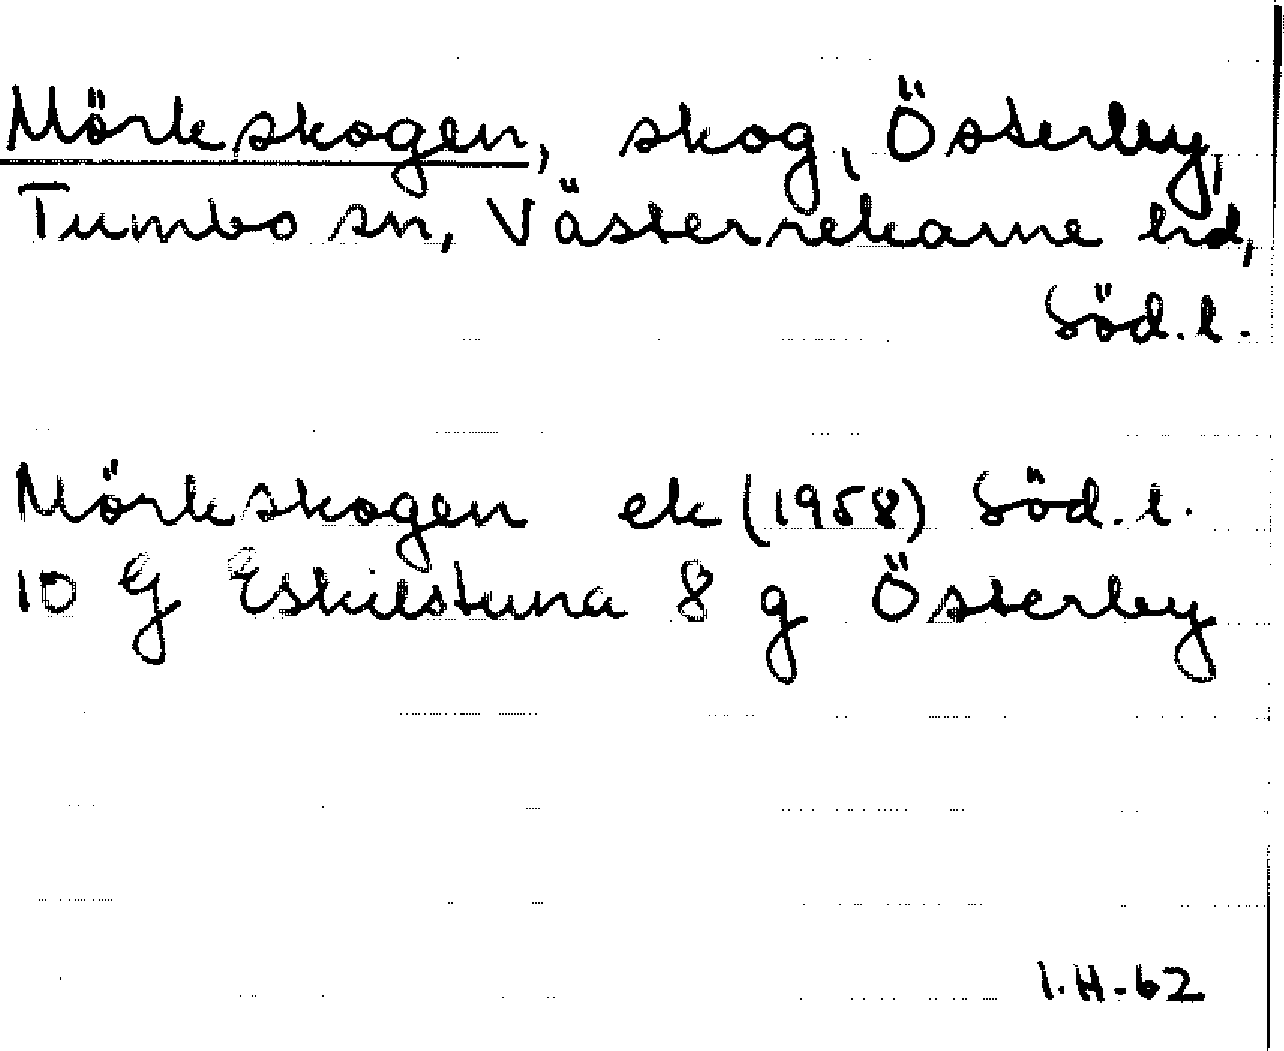 Mörkskogen, skog, Österby,
Tumbo sn, Västerrekarne hd,
Söd.l.
Mörkskogen ek (1958) Söd.l.
10 G Eskilstuna 8 g Österby
I.H-62